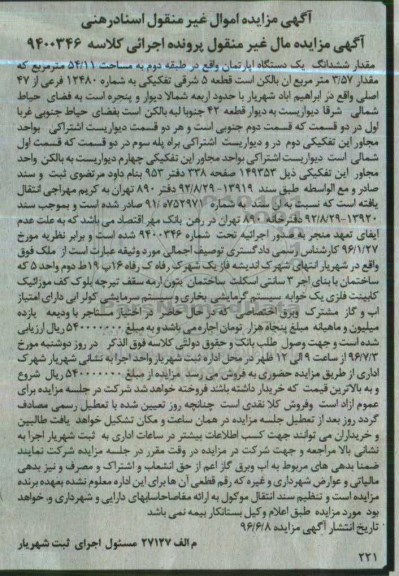 آگهی مزایده اموال غیر منقول اسنادرهنی
آگهی مزایده مال غیر منقول پرونده اجرائی کلاسه ۹۴۰۰۳۴۶
مقدار ششدانگ یک دستگاه آپارتمان واقع در طبقه دوم به مساحت ۵۴/۱۱ مترمربع که
مقدار ۳/۵۷ متر مربع آن بالکن است قطعه ۵ شرقی تفکیکی به شماره ۱۲۴۸۰ فرعی از ۴۷
اصلی واقع در ابراهیم آباد شهریار با حدود اربعه شمالا دیوار و پنجره است به فضای حیاط
شمالی شرقا دیواریست به دیوار قطعه ۴۲ جنوبا لبه بالکن است بفضای حیاط جنوبی غربا
اول در دو قسمت که قسمت دوم جنوبی است و هر دو قسمت دیواریست اشتراکی بواحد
مجاور این تفکیکی دوم در و دیواریست اشتراکی براه پله سوم در دو قسمت که قسمت اول
شمالی است دیواریست اشتراکی بواحد مجاور این تفکیکی چهارم دیواریست به بالکن واحد
مجاور این تفکیکی ذیل ۱۴۹۳۵۳ صفحه ۳۳۸ دفتر ۹۵۳ بنام داود مرتضوی ثبت و سند
صادر و مع الواسطه طبق سند ۱۳۹۱۹-۹۲/۸/۲۹ دفتر ۸۹۰ تهران به کریم مهراجی انتقال
یافته است که نسبت به آن سند به شماره ۷۵۳۹۷۱ه/۹۱ صادر شده است و بموجب سند
۱۳۹۲۰-۹۲/۸/۲۹ دفترخانه ۸۹۰ تهران در رهن بانک مهر اقتصاد می باشد که به علت عدم
ایفای تعهد منجر به صدور اجرائیه تحت شماره ۹۴۰۰۳۴۶ شده است و برابر نظریه مورخ
۹۶/۱/۲۷ کارشناس رسمی دادگستری توصیف اجمالی مورد وثیقه عبارت است از ملک فوق
واقع در شهریار انتهای شهرک اندیشه فاز یک شهرک رفاه ک رفاه ۱۶پ ۱۹ط دوم واحد ۵ که
ساختمان با بنای آجر ۳ سانتی اسکلت ساختمان بتون آرمه سقف تیرچه بلوک کف موزائیک
کابینت فلزی یک خوابه سیستم گرمایشی بخاری و سیستم سرمایشی کولر آبی دارای امتیاز
آب و گاز مشترک وبرق اختصاصی که در حال حاضر در اختیار مستاجر با ودیعه یازده
میلیون و ماهیانه مبلغ پنجاه هزار تومان اجاره می باشد و به مبلغ ۵۴۰۰۰۰۰۰۰ ریال ارزیابی
شده است و جهت وصول طلب بانک و حقوق دولتی کلاسه فوق الذکر در روز دوشنبه مورخ
۹۶/۷/۳ از ساعت ۹ الی ۱۲ ظهر در محل اداره ثبت شهریار واحد اجرا به نشانی شهریار شهرک
اداری از طریق مزایده حضوری به فروش می رسد مزایده از مبلغ ۵۴۰۰۰۰۰۰۰ ریال شروع
و به بالاترین قیمت که خریدار داشته باشد فروخته خواهد شد شرکت در جلسه مزایده برای
عموم آزاد است وفروش کلا نقدی است چنانچه روز تعیین شده با تعطیل رسمی مصادف
گردد روز بعد از تعطیل جلسه مزایده در همان ساعت و مکان تشکیل خواهد یافت طالبین
و خریداران می توانند جهت کسب اطلاعات بیشتر در ساعات اداری به ثبت شهریار اجرا به
نشانی بالا مراجعه و جهت شرکت در مزایده در وقت مقرر در جلسه مزایده شرکت نمایند
ضمنا بدهی های مربوط به آب وبرق گاز اعم از حق انشعاب و اشتراک و مصرف و نیز بدهی
مالیاتی و عوارض شهرداری و غیره که رقم قطعی آن ها برای این اداره معلوم نشده بعهده برنده
مزایده است و تنظیم سند انتقال موکول به ارائه مفاصاحسابهای دارایی و شهرداری و، خواهد
بود مورد مزایده طبق اعلام وکیل بستانکار بیمه نمی باشد
تاریخ انتشار آگهی مزایده ۹۶/۶/۸
م الف ۲۷۱۲۷ مسئول اجرای ثبت شهریار
۲۲۱